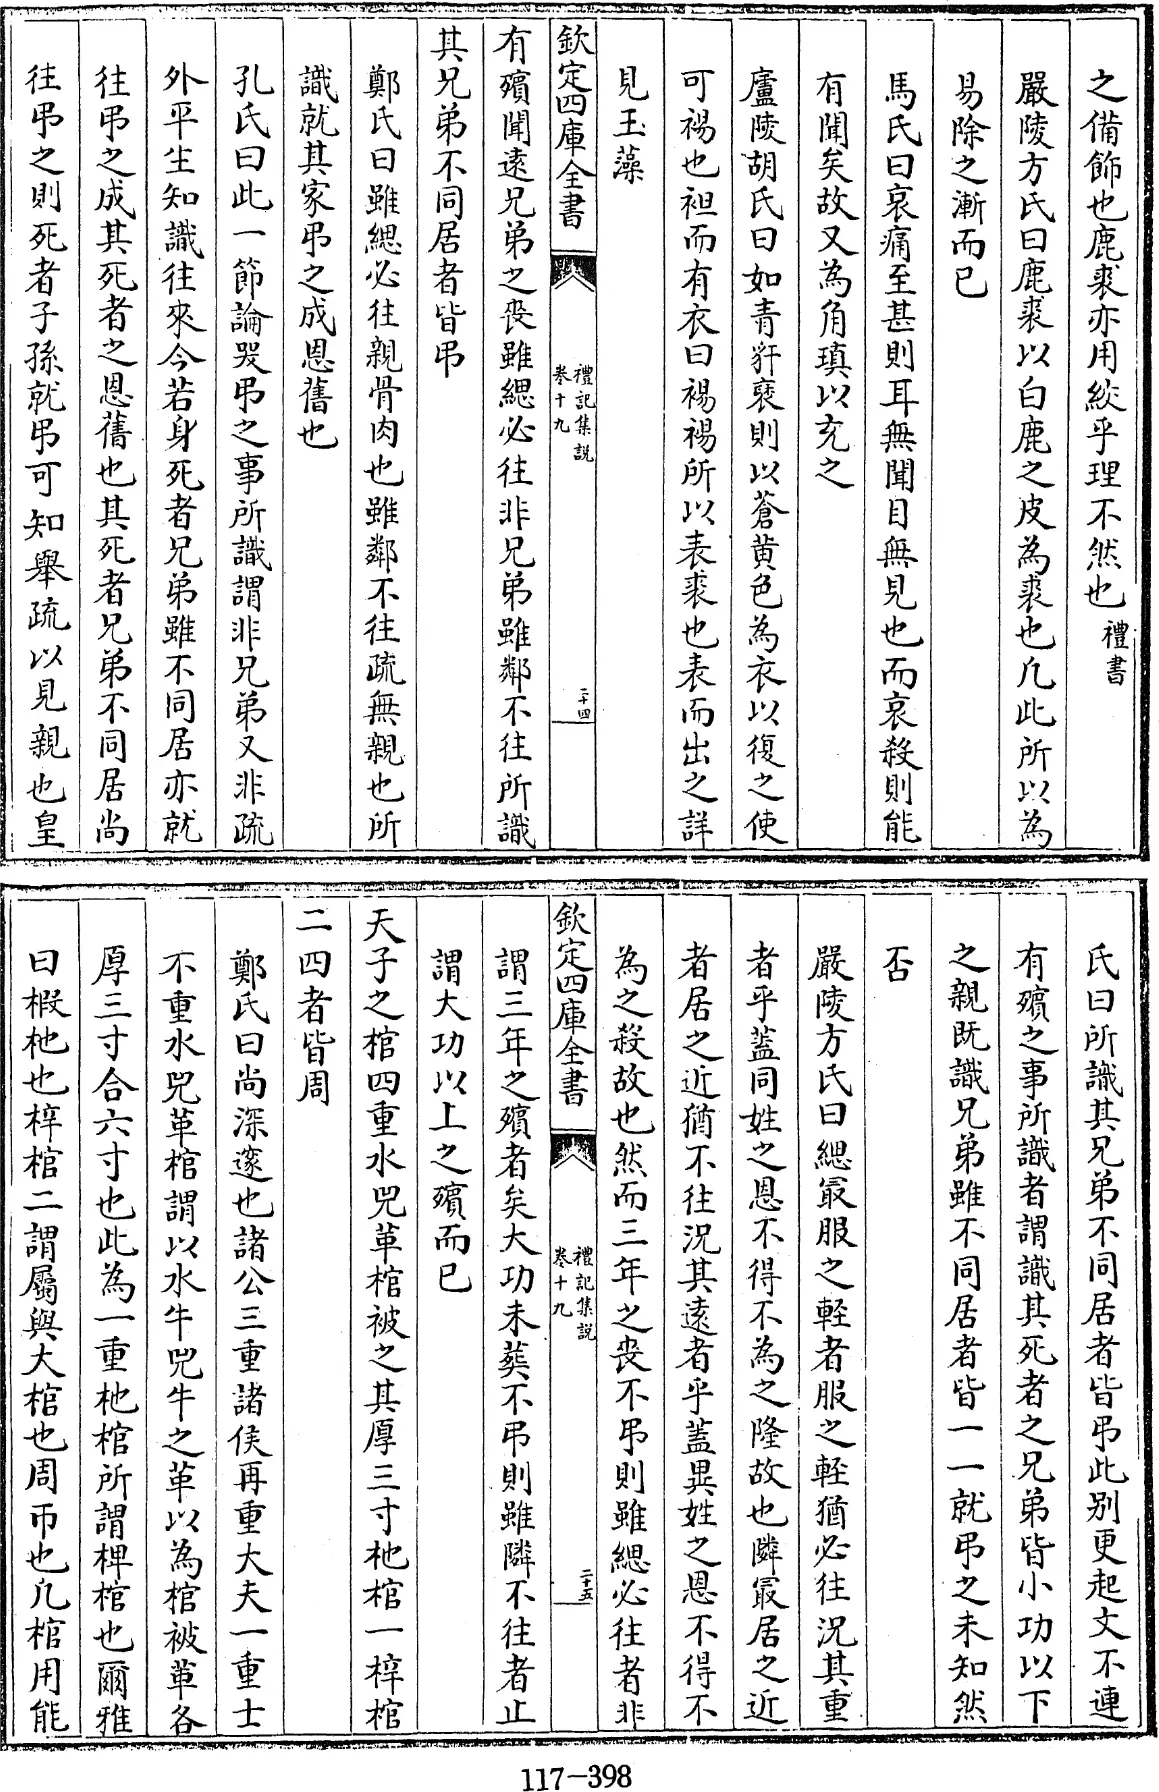 之備飾也鹿裘亦用絞乎理不然也禮書
嚴陵方氏曰鹿裘以白鹿之皮為裘也凡此所以為
易除之漸而已
馬氏曰哀痛至甚則耳無聞目無見也而哀殺則能
有聞矣故又為角瑱以充之
廬陵胡氏曰如青豻褎則以蒼黄色為衣以復之使
可裼也袒而有衣曰裼裼所以表裘也表而出之詳
見玉藻
欽定四庫全書 禮記集説 卷十九 二十四
有殯聞遠兄弟之喪雖緦必往非兄弟雖鄰不往所識
其兄弟不同居者皆弔
鄭氏曰雖緦必往親骨肉也雖鄰不往疏無親也所
識就其家弔之成恩舊也
孔氏曰此一節論哭弔之事所識謂非兄弟又非疏
外平生知識往來今若身死者兄弟雖不同居亦就
往弔之成其死者之恩舊也其死者兄弟不同居尚
往弔之則死者子孫就弔可知舉疏以見親也皇
氏曰所識其兄弟不同居者皆弔此别更起文不連
有殯之事所識者謂識其死者之兄弟皆小功以下
之親既識兄弟雖不同居者皆一一就弔之未知然
否
嚴陵方氏曰緦㝡服之輕者服之輕猶必往況其重
者乎蓋同姓之恩不得不為之隆故也隣㝡居之近
者居之近猶不往況其遠者乎蓋異姓之恩不得不
為之殺故也然而三年之喪不弔則雖緦必往者非
欽定四庫全書 禮記集説 卷十九 二十五
謂三年之殯者矣大功未葬不弔則雖隣不往者止
謂大功以上之殯而已
天子之棺四重水兕革棺被之其厚三寸杝棺一梓棺
二四者皆周
鄭氏曰尚深邃也諸公三重諸侯再重大夫一重士
不重水兕革棺謂以水牛兕牛之革以為棺被革各
厚三寸合六寸也此為一重杝棺所謂椑棺也爾雅
曰椵杝也梓棺二謂屬與大棺也周帀也凡棺用能
117-398